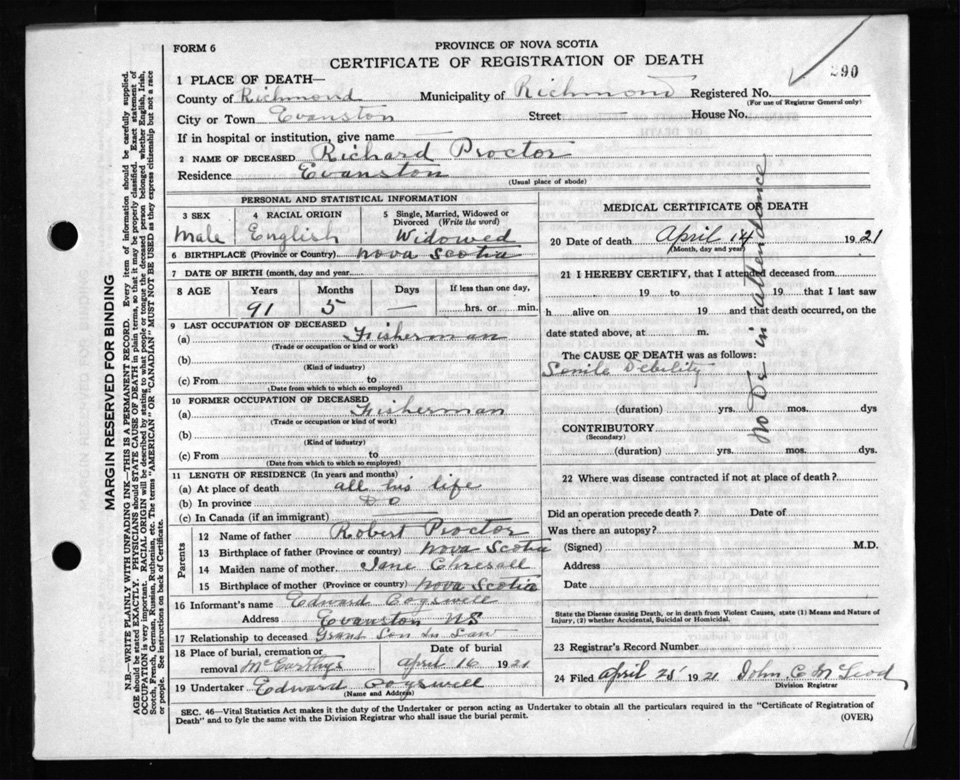 FORM 6
PROVINCE OF NOVA SCOTIA
CERTIFICATE OF REGISTRATION OF DEATH
290
1 PLACE OF DEATH—
County of Richmond Municipality of Richmond Registered No.
(For use of Registrar General only)
City or Town Evanston Street — House No.
If in hospital or institution, give name
2 NAME OF DECEASED Richard Proctor
Residence Evanston
(Usual place of abode)
PERSONAL AND STATISTICAL INFORMATION
3 SEX 4 RACIAL ORIGIN 5 Single, Married, Widowed or Divorced (Write the word)
Male English Widowed
6 BIRTHPLACE (Province or Country) Nova Scotia
7 DATE OF BIRTH (month, day and year)
8 AGE Years Months Days If less than one day,
91 5 — hrs. or min.
9 LAST OCCUPATION OF DECEASED
(a) Fisherman
(Trade or occupation or kind of work)
(b)
(Kind of industry)
(c) From to
(Date from which to which so employed)
10 FORMER OCCUPATION OF DECEASED
(a) Fisherman
(Trade or occupation or kind of work)
(b)
(Kind of industry)
(c) From to
(Date from which to which so employed)
11 LENGTH OF RESIDENCE (In years and months)
(a) At place of death all his life
(b) In province DO
(c) In Canada (if an immigrant)
Parents
12 Name of father Robert Proctor
13 Birthplace of father (Province or country) Nova Scotia
14 Maiden name of mother Jane
15 Birthplace of mother (Province or country) Nova Scotia
16 Informant's name Edward Cogswell
Address Evanston NS
17 Relationship to deceased Grant Son In Law
18 Place of burial, cremation or removal McCarthys
Date of burial
April 16 1921
19 Undertaker Edward Cogswell
(Name and Address)
MEDICAL CERTIFICATE OF DEATH
20 Date of death April 14 1921
(Month, day and year)
21 I HEREBY CERTIFY, that I attended deceased from
19 to 19 that I last saw
h alive on 19 and that death occurred, on the
date stated above, at m.
The CAUSE OF DEATH was as follows:
Senile Debility
(duration) yrs. mos. dys
CONTRIBUTORY
(Secondary)
(duration) yrs. mos. dys.
No Dr in attendance
22 Where was disease contracted if not at place of death?
Did an operation precede death? Date of
Was there an autopsy?
(Signed) M.D.
Address
Date
State the Disease causing Death, or in death from Violent Causes, state (1) Means and Nature of
Injury, (2) whether Accidental, Suicidal or Homicidal.
23 Registrar's Record Number
24 Filed April 25 1921 John C McLeod
Division Registrar
SEC. 46—Vital Statistics Act makes it the duty of the Undertaker or person acting as Undertaker to obtain all the particulars required in the "Certificate of Registration of
Death" and to fyle the same with the Division Registrar who shall issue the burial permit.
(OVER)
MARGIN RESERVED FOR BINDING
N.B.—WRITE PLAINLY WITH UNFADING INK—THIS IS A PERMANENT RECORD. Every item of information should be carefully supplied.
AGE should be stated EXACTLY. PHYSICIANS should STATE CAUSE OF DEATH in plain terms, so that it may be properly classified. Exact statement of
OCCUPATION is very important. RACIAL ORIGIN will be described by stating to what people or tongue the deceased person belonged whether English, Irish,
Scotch, French, German, Russian, Ruthenian, etc. The terms "AMERICAN" OR "CANADIAN" MUST NOT BE USED as they express citizenship but not a race
or people. See instructions on back of Certificate.